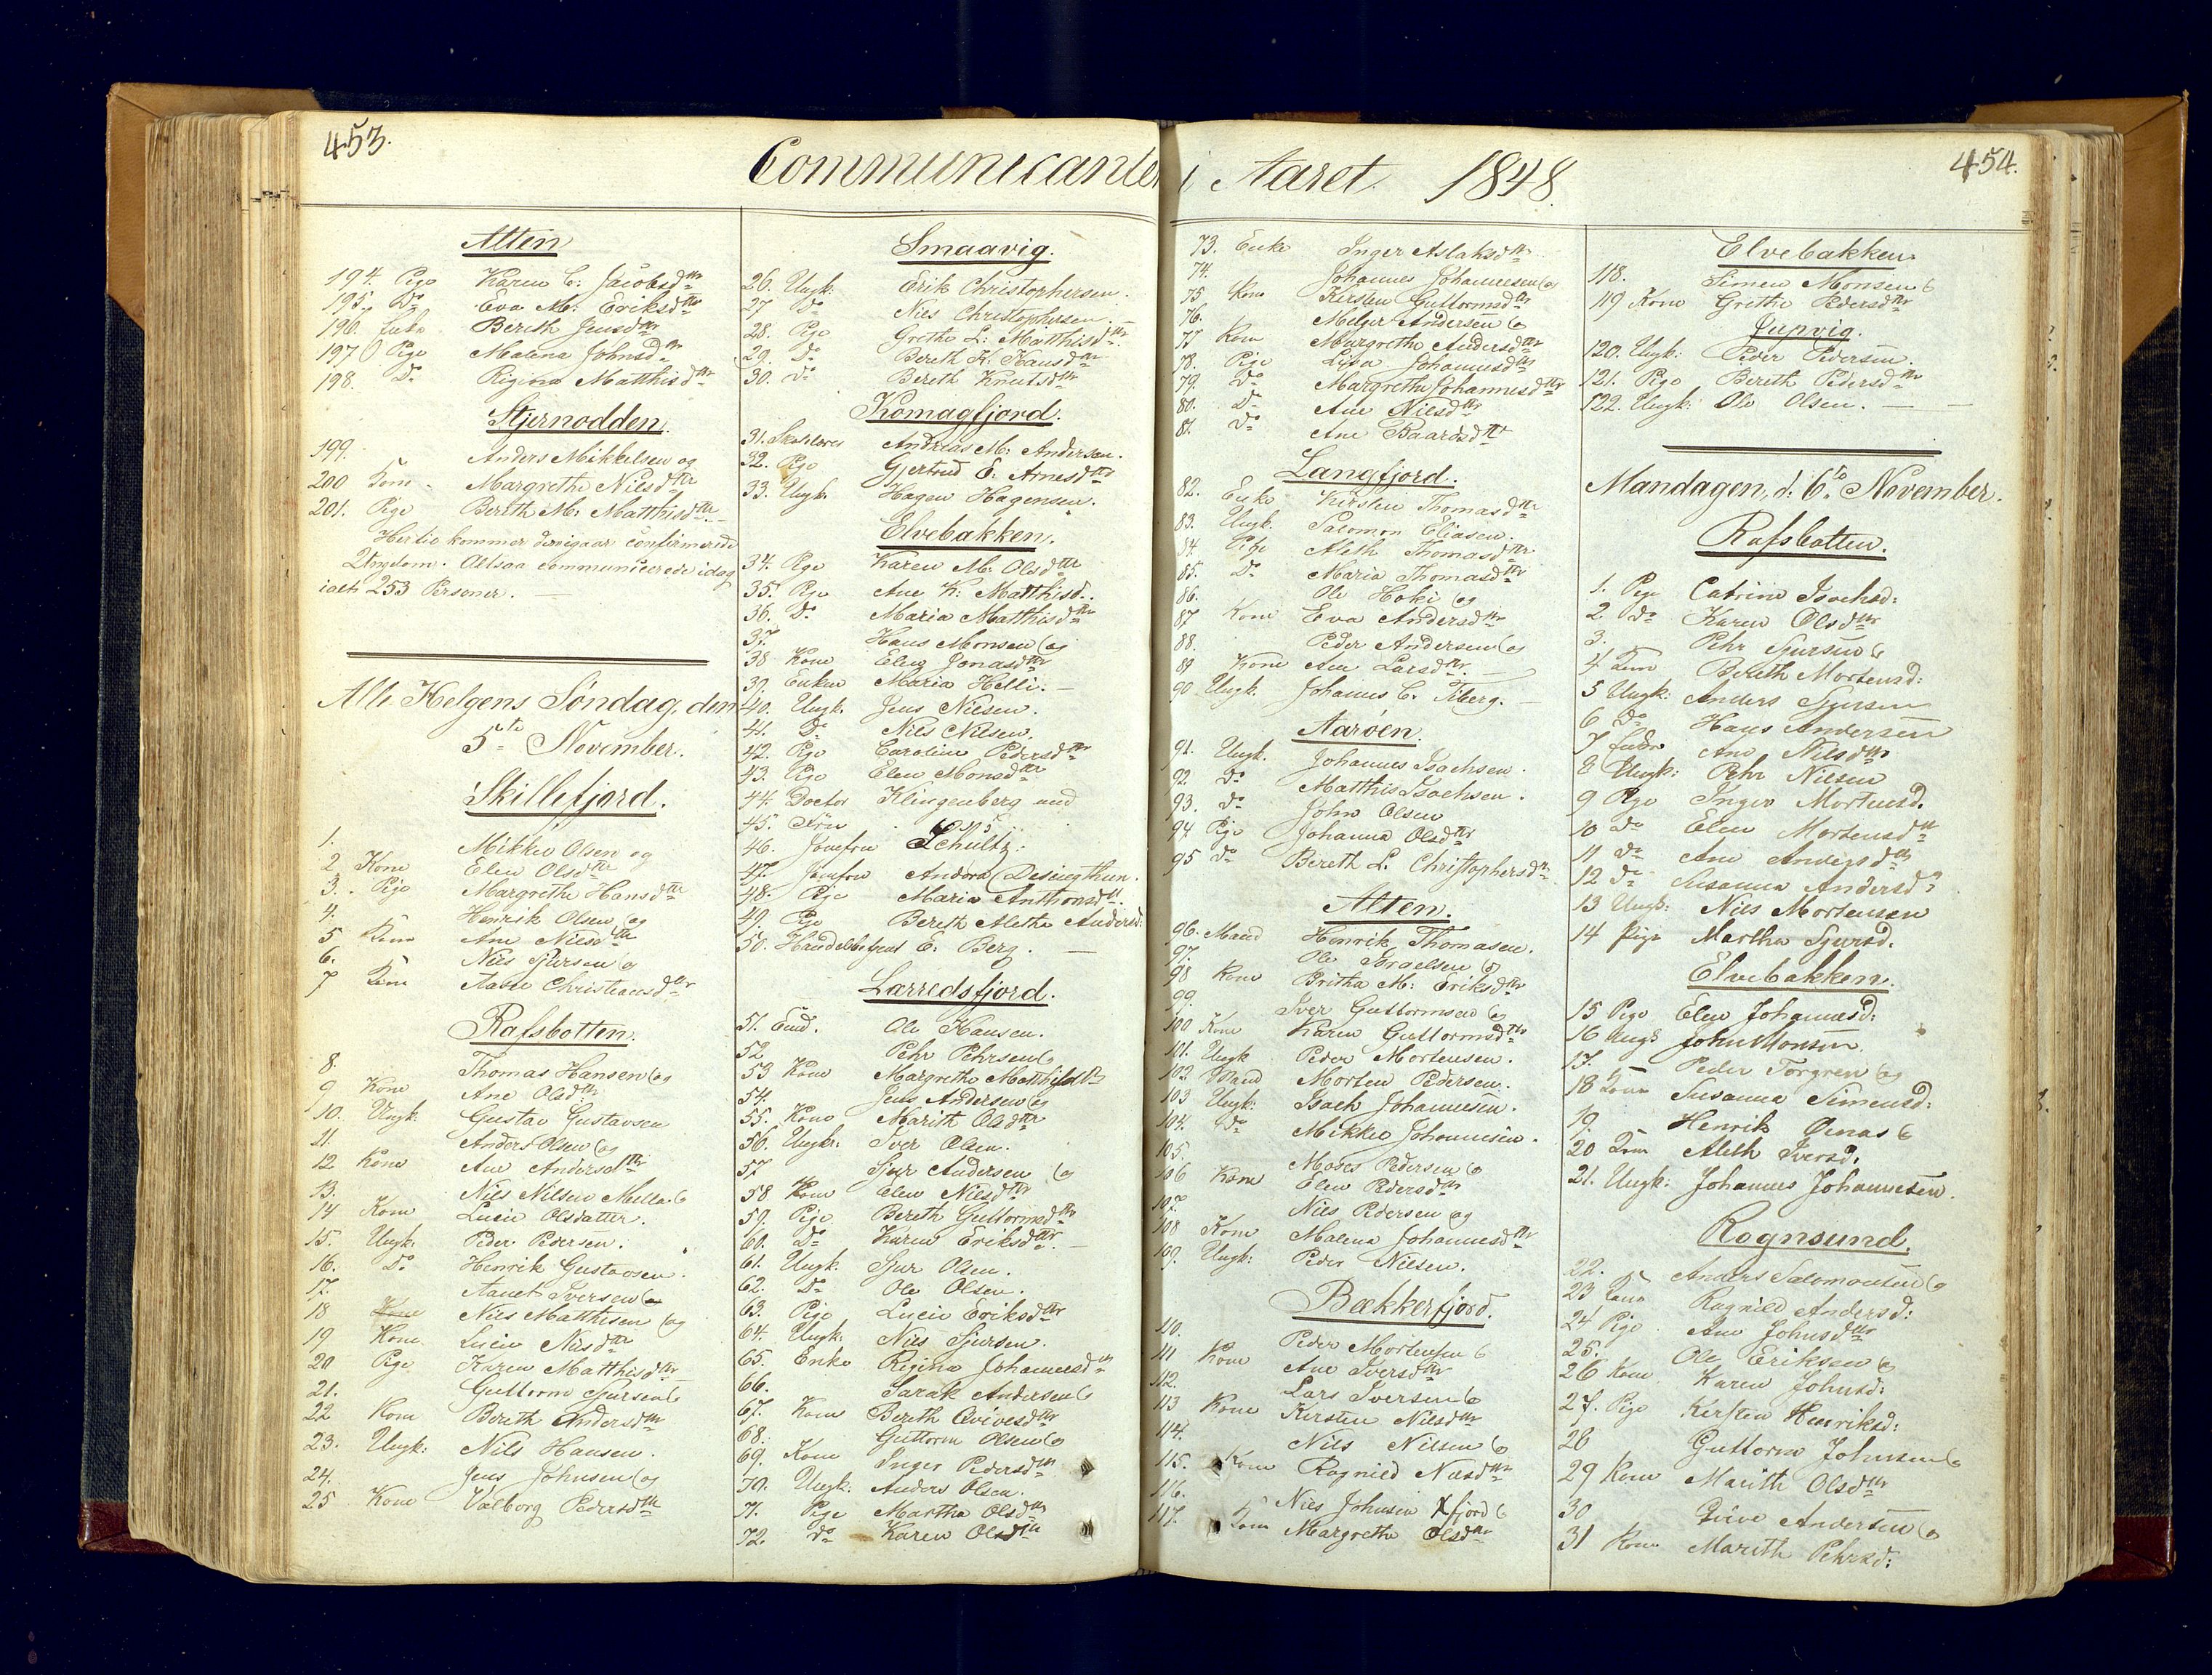 453.
Communicanter i Aaret 1848.
454.
Alten
194. Pige Karen C: Jacobsdtr
195. Do Eva M: Eriksdtr
196. Enke Berith Jensdtr
197 Pige Malena Johnsdtr
198. Do Regina Matthisdtr
Stjernodden.
199. Anders Mikkelsen og
200 Kone Margrethe Nilsdtr
201. Pige Berith M: Matthisdtr
Hertil kommer den igaar confirmerede
Ungdom. Altsaa communicerede idag
ialt 253 Personer.
Alle Helgens Søndag, den
5te November.
Skillefjord.
1. Mikkel Olsen og
2 Kone Elen Olsdtr
3. Pige Margrethe Hansdtr
4. Henrik Olsen og
5 Kone Ane Nilsdtr
6. Nils Sjursen og
7 Kone Aase Christiansdtr
Rafsbotten.
8. Thomas Hansen og
9 Kone Ane Olsdtr
10. Ungk: Gustav Gustavsen
11. Anders Olsen og
12 Kone Ane Andersdtr
13. Nils Nilsen Mella og
14 Kone Lucie Olsdatter.
15. Ungk: Peder Pedersen.
16. Do Henrik Gustavsen.
17. Iversen
18 Kone Nils Matthisen og
19 Kone Lucie Nilsdtr
20 Pige Karen Matthisdtr
21. Guttorm Sjursen og
22 Kone Berith Andersdtr
23. Ungk: Nils Hansen.
24. Jens Johnsen og
25 Kone Valborg Pedersdtr
Smaavig.
26. Ungk: Erik Christophersen.
27 Do Nils Christophersen.
28. Pige Grethe L: Matthisdtr
29. Do Bereth K. Hansdtr
30. Do Bereth Knutsdtr
Komagfjord.
31. Skolelærer Andreas M: Andersen.
32. Pige Gjertrud E: Arnesdtr
33. Ungk. Hagen Hagensen.
Elvebakken.
34. Pige Karen M: Olsdtr
35. Pige Ane K: Matthisd.
36. Do Maria Matthisdtr
37. Hans Monsen og
38 Kone Elen Jonasdtr
39. Enken Maria Helli.
40. Ungk. Jens Nilsen.
41. Do Nils Nilsen.
42. Pige Caroline Pedersdtr
43. Pige Elen Monsdtr
44. Doctor Klingenberg med
45. Frue
46. Jomfrue Schultz.
47. Jomfrue Andora Desingthun.
48. Pige Maria Anthonsdtr.
49. Pige Bereth Alethe Andersd:
50. Handelsbetjent E: Berg.
Larredsfjord.
51. Enk. Ole Hansen.
52 Pehr Pehrsen og
53 Kone Margrethe Matthisdtr
54. Jens Andersen og
55. Kone Marith Olsdtr
56. Ungkr: Iver Olsen.
57. Sjur Andersen og
58. Kone Elen Nilsdtr
59. Pige Bereth Guttormsdtr
60. Do Karen Eriksdtr
61. Ungk: Sjur Olsen.
62. Do Ole Olsen.
63. Pige Lucie Eriksdtr
64. Ungk: Nils Sjursen.
65. Enke Regina Johannesdtr
66. Sarak Andersen og
67. Kone Bereth Qvivesdtr
68. Guttorm Olsen og
69. Kone Inger Pedersdtr
70. Ungk: Anders Olsen.
71. Pige Martha Olsdtr
72. Do Karen Olsdtr
73. Enke Inger Aslaksdtr
74. Johannes Johannesen og
75 Kone Kirsten Guttormsdtr
76. Melger Andersen og
77 Kone Margrethe Andersdtr
78. Pige Lisa Johannesdtr
79. Do Margrethe Johannesdtr
80. Do Ane Nilsdtr
81. Do Ane Baardsdtr
Langfjord.
82. Enke Kirsten Thomasdtr
83. Ungk. Salomon Eliasen.
84. Pige Aleth Thomasdtr
85. Do Maria Thomasdtr
86. Ole Hoki og
87 Kone Eva Andersdtr
88. Peder Andersen og
89 Kone Ane Larsdtr.
90 Ungk. Johannes C. Tiberg.
Aarøen.
91. Ungk. Johannes Isachsen.
92. Do Matthis Isachsen.
93. Do John Olsen
94 Pige Johanna Olsdtr
95 Do Bereth L. Christophersdtr
Alten.
96. Mand Henrik Thomasen.
97. Ole Israelsen og
98 Kone Britha M: Eriksdtr
99. Iver Guttormsen og
100 Kone Karen Guttormsdtr
101. Ungk Peder Mortensen.
102. Mand Morten Pedersen.
103 Ungk: Isach Johannesen.
104. Do Mikkel Johannesen.
105. Moses Pedersen og
106 Kone Elen Pedersdtr
107. Nils Pedersen og
108 Kone Malena Johannesdtr
109. Ungk: Peder Nilsen.
Bækkerfjord.
110. Peder Mortensen og
111 Kone Ane Iversdtr
112. Lars Iversen og
113 Kone Kirsten Nilsdtr
114. Nils Nilsen og
115. Kone Ragnild Nilsdtr
116. Nils Johnsen Xfjord og
117. Kone Margrethe Olsdtr
Elvebakken.
118. Simen Monsen og
119 Kone Grethe Pedersdtr
Jupvig.
120. Ungk: Peder Pedersen.
121. Pige Bereth Pedersdtr
122. Ungk: Ole Olsen.
Mandagen, d. 6te November.
Rafsbotten.
1. Pige Catrine Isachsd:
2. Do Karen Olsdtr
3. Pehr Sjursen og
4 Kone Bereth Mortensd:
5 Ungk: Anders Sjursen
6 Do Hans Andersen
7 Enke Ane Nilsdtr
8 Ungk: Pehr Nilsen
9 Pige Inger Mortensd.
10 Do Elen Mortensdtr
11 Do Ane Andersdtr
12 Do Susanna Andersd.
13 Ungk: Nils Mortensen
14 Pige Martha Sjursd.
Elvebakken.
15 Pige Elen Johannesd:
16 Ungk John Monsen.
17. Peder Torgren og
18 Kone Susanna Simensd:
19. Henrik og
20 Kone Aleth Iversd.
21. Ungk: Johannes Johannesen.
Rognsund.
22. Anders Salomonsen og
23 Kone Ragnild Andersd:
24 Pige Ane Johnsdtr
25. Ole Eriksen og
26 Kone Karen Johnsd:
27. Pige Kirsten Henriksd:
28 Guttorm Johnsen og
29 Kone Marith Olsdtr
30 Qvive Andersen og
31 Kone Marith Pehrsd: